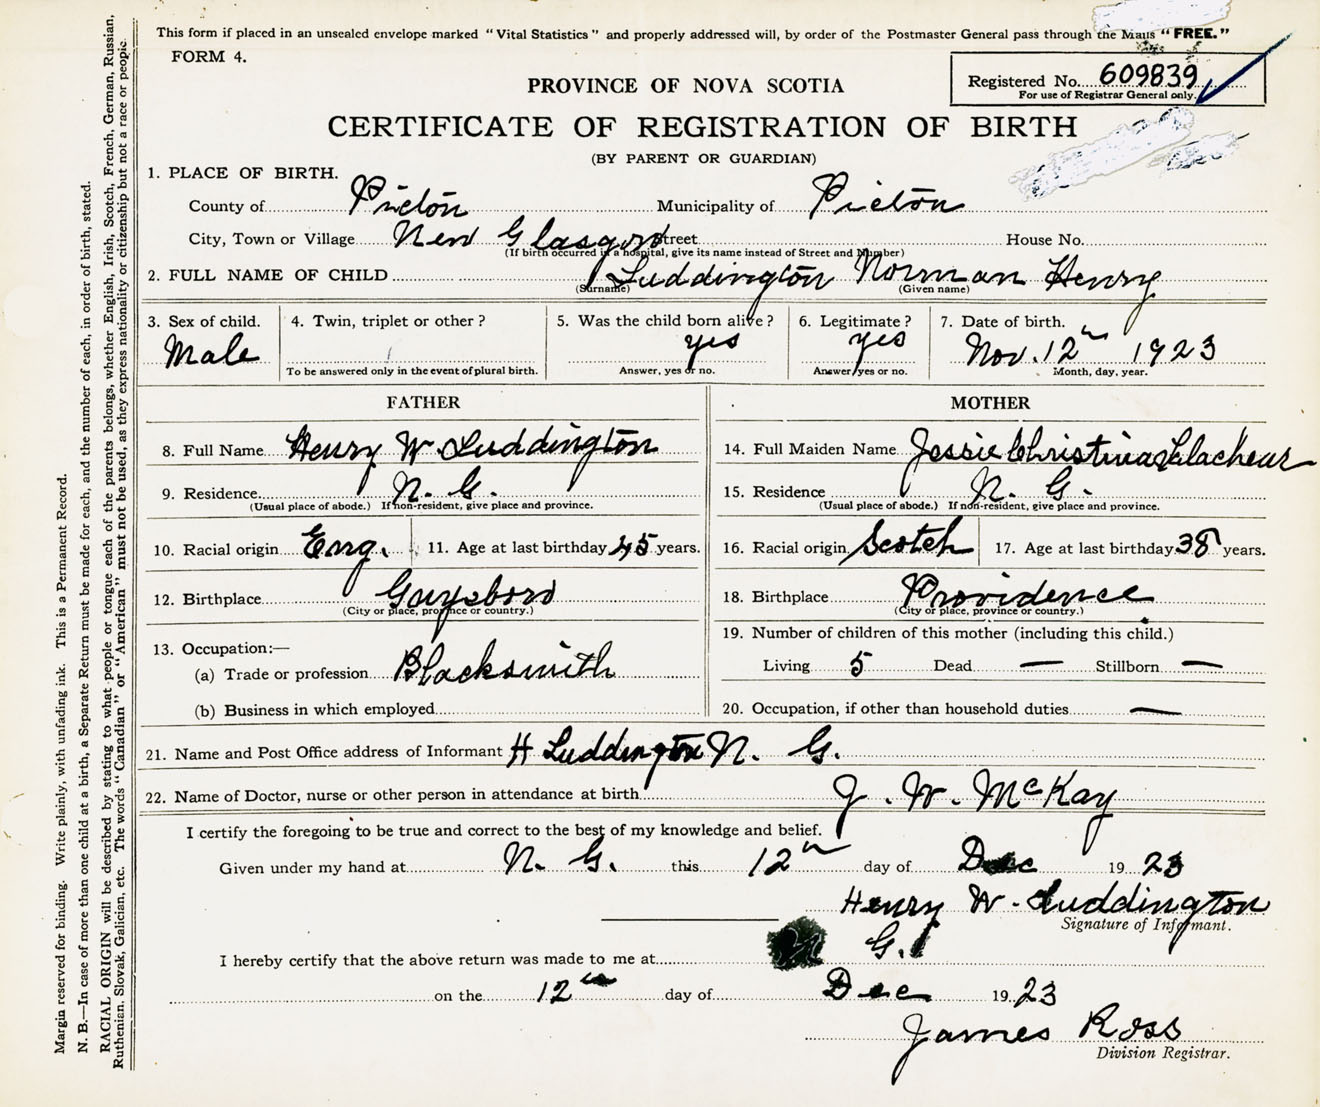 This form if placed in an unsealed envelope marked "Vital Statistics" and properly addressed will, by order of the Postmaster General pass through the Mails "FREE."
FORM 4.
Registered No. 609839
For use of Registrar General only.
PROVINCE OF NOVA SCOTIA
CERTIFICATE OF REGISTRATION OF BIRTH
(BY PARENT OR GUARDIAN)
1. PLACE OF BIRTH.
County of Pictou Municipality of Pictou
City, Town or Village New Glasgow Street House No.
(If birth occurred in a hospital, give its name instead of Street and Number)
2. FULL NAME OF CHILD Luddington Norman Henry
(Surname) (Given name)
3. Sex of child. 4. Twin, triplet or other? 5. Was the child born alive? 6. Legitimate? 7. Date of birth.
Male yes yes Nov. 12th 1923
To be answered only in the event of plural birth. Answer, yes or no. Answer yes or no. Month, day, year.
FATHER
8. Full Name Henry W. Luddington
9. Residence N. G.
(Usual place of abode.) If non-resident, give place and province.
10. Racial origin Eng. 11. Age at last birthday 45 years.
12. Birthplace Guysboro
(City or place, province or country.)
13. Occupation:—
(a) Trade or profession Blacksmith
(b) Business in which employed
MOTHER
14. Full Maiden Name Jessie Christina
15. Residence N. G.
(Usual place of abode.) If non-resident, give place and province.
16. Racial origin Scotch 17. Age at last birthday 38 years.
18. Birthplace Providence
(City or place, province or country.)
19. Number of children of this mother (including this child.)
Living 5 Dead — Stillborn —
20. Occupation, if other than household duties —
21. Name and Post Office address of Informant H Luddington N. G.
22. Name of Doctor, nurse or other person in attendance at birth J. W. McKay
I certify the foregoing to be true and correct to the best of my knowledge and belief.
Given under my hand at N. G. this 12th day of Dec 1923
Henry W. Luddington
Signature of Informant.
I hereby certify that the above return was made to me at N G.
on the 12th day of Dec 1923
James Ross
Division Registrar.
Margin reserved for binding. Write plainly, with unfading ink. This is a Permanent Record.
N. B.—In case of more than one child at a birth, a Separate Return must be made for each, and the number of each, in order of birth, stated.
RACIAL ORIGIN will be described by stating to what people or tongue each of the parents belongs, whether English, Irish, Scotch, French, German, Russian,
Ruthenian, Slovak, Galician, etc. The words "Canadian" or "American" must not be used, as they express nationality or citizenship but not a race or people.